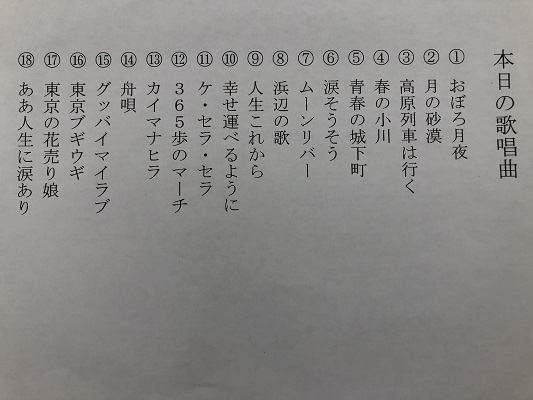 本日の歌唱曲
① おぼろ月夜
② 月の砂漠
③ 高原列車は行く
④ 春の小川
⑤ 青春の城下町
⑥ 涙そうそう
⑦ ムーンリバー
⑧ 浜辺の歌
⑨ 人生これから
⑩ 幸せ運べるように
⑪ ケ・セラ・セラ
⑫ 365歩のマーチ
⑬ カイマナヒラ
⑭ 舟唄
⑮ グッバイマイラブ
⑯ 東京ブギウギ
⑰ 東京の花売り娘
⑱ ああ人生に涙あり